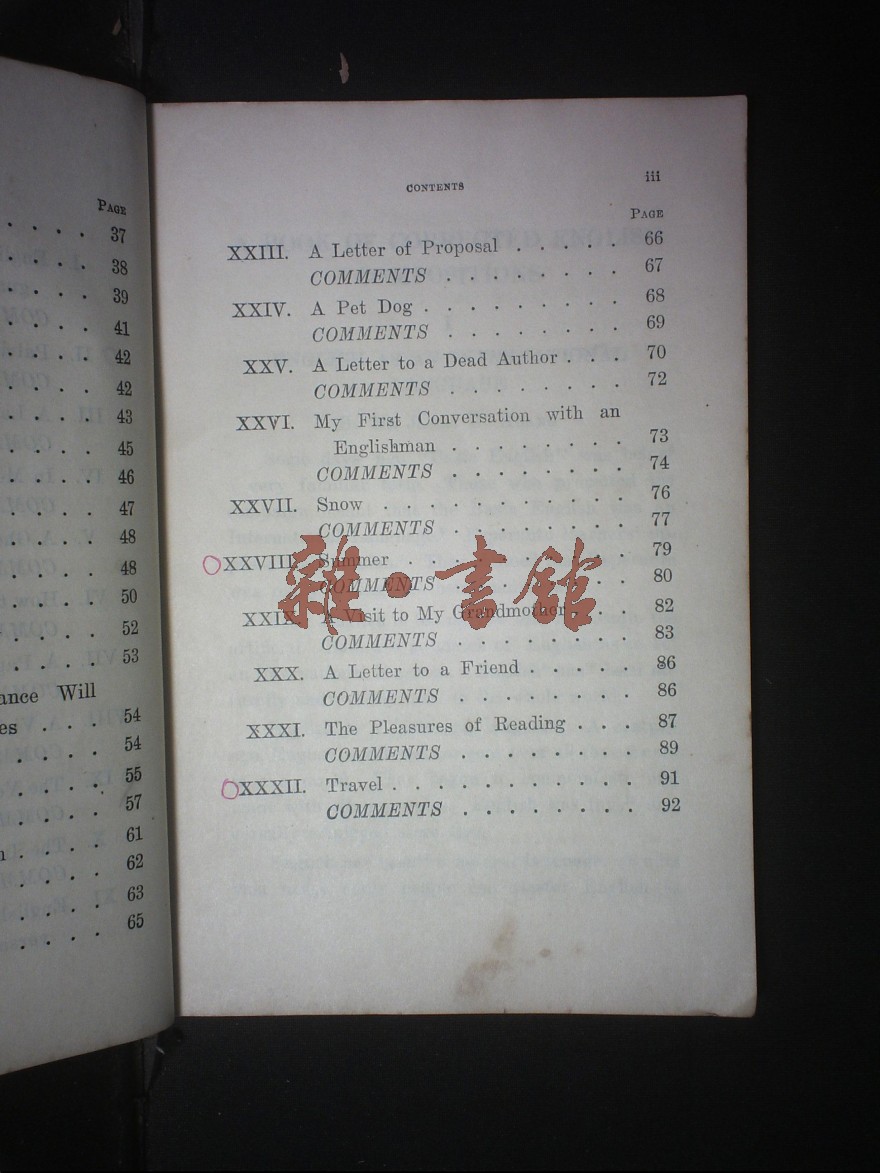 PAGE
37
38
39
41
42
42
43
45
46
47
48
48
50
52
53
Will
54
54
55
57
61
62
63
65
CONTENTS iii
PAGE
XXIII. A Letter of Proposal . . . . . . 66
COMMENTS . . . . . . . . 67
XXIV. A Pet Dog . . . . . . . . . 68
COMMENTS . . . . . . . . 69
XXV. A Letter to a Dead Author . . . 70
COMMENTS . . . . . . . . 72
XXVI. My First Conversation with an
Englishman . . . . . . . . 73
COMMENTS . . . . . . . . 74
XXVII. Snow . . . . . . . . . . . . 76
COMMENTS . . . . . . . . 77
XXVIII. Summer . . . . . . . . . . 79
COMMENTS . . . . . . . . 80
XXIX. A Visit to My Grandmother . . . 82
COMMENTS . . . . . . . . 83
XXX. A Letter to a Friend . . . . . 86
COMMENTS . . . . . . . . 86
XXXI. The Pleasures of Reading . . . 87
COMMENTS . . . . . . . . 89
XXXII. Travel . . . . . . . . . . . 91
COMMENTS . . . . . . . . 92
雜·書館